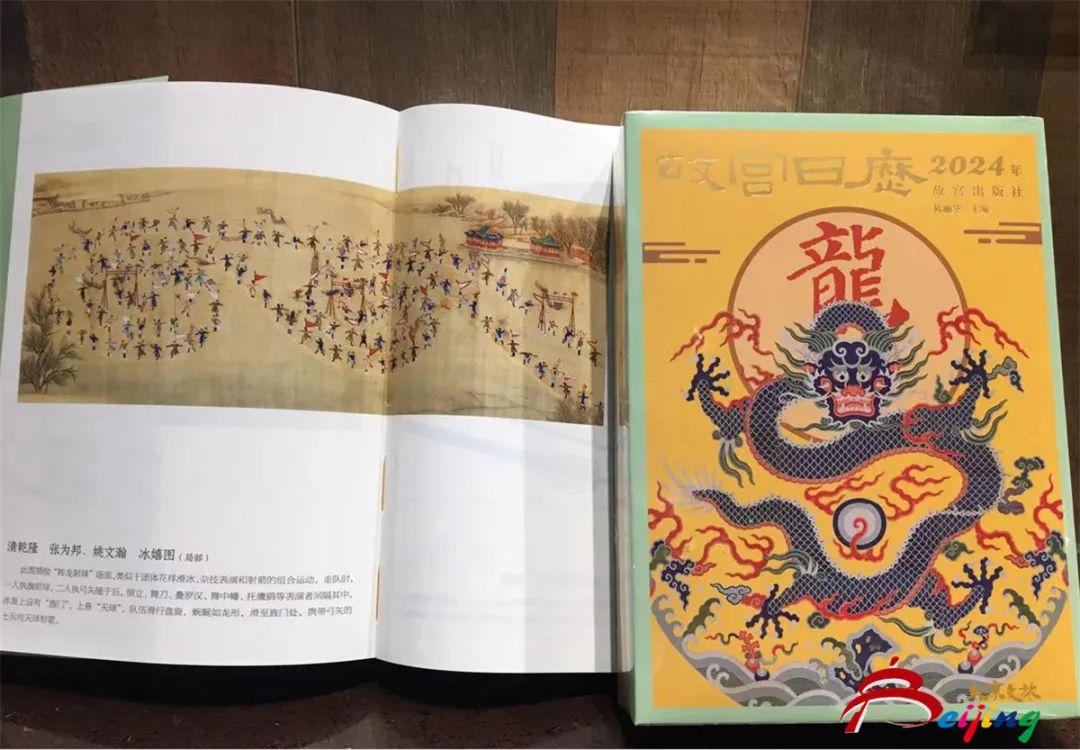 清乾隆 张为邦、姚文瀚 冰嬉图（局部）
此图描绘“转龙射球”场面，类似于团体花样滑冰、杂技表演和射箭的组合运动。走队时，
一人执旗前球，二人执弓矢随于后。倒立、舞刀、叠罗汉、舞中幡、托鹰鹞等表演者间隔其中。
冰面上设有“旌门”，上悬“天球”，队伍滑行盘旋，蜿蜒如龙形，滑至旌门处，携带弓矢的
士兵向天球射箭。
故宫日历 2024年
故宫出版社
主编
龍
Beijing